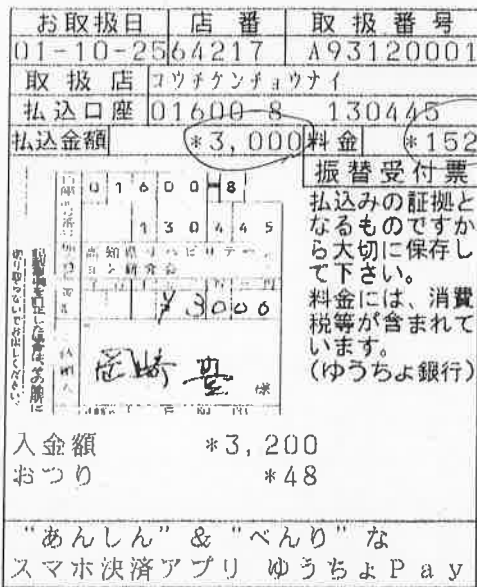 お取扱日 店番 取扱番号
01-10-25 64217 A93120001
取扱店 コウチケンチョウナイ
払込口座 01600-8 130445
払込金額 *3,000 料金 *152
振替受付票
払込みの証拠と
なるものですか
ら大切に保存し
て下さい。
料金には、消費
税等が含まれて
います。
(ゆうちょ銀行)
01600-8
130445
高知県リハビリテー
ション研究会
¥3000
岡崎 様
切り取らないでお出しください。
入金額 *3,200
おつり *48
"あんしん"&"べんり"な
スマホ決済アプリ ゆうちょPay